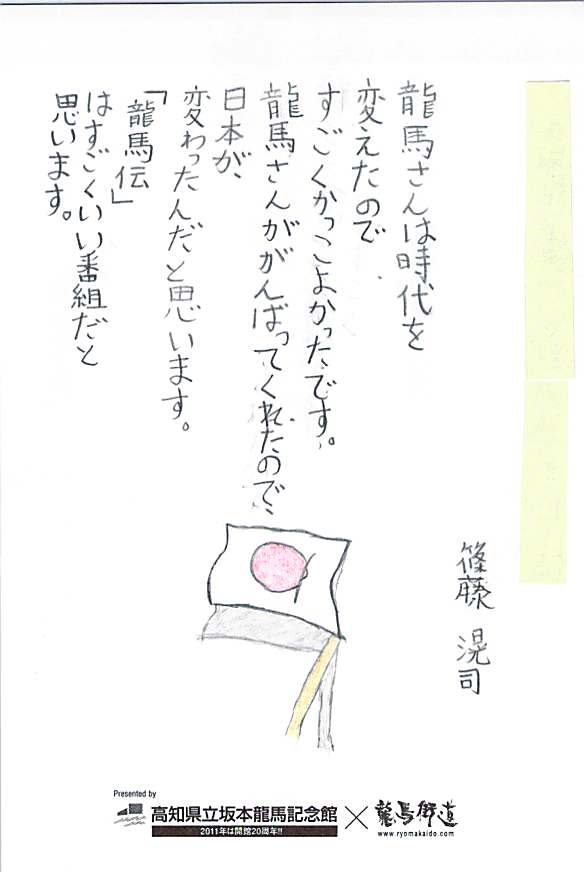 篠藤 滉司
龍馬さんは時代を
変えたので
すごくかっこよかったです。
龍馬さんががんばってくれたので、
日本が、
変わったんだと思います。
「龍馬伝」
はすごくいい番組だと
思います。
Presented by
高知県立坂本龍馬記念館 × 龍馬街道
2011年は開館20周年!!
www.ryomakaido.com